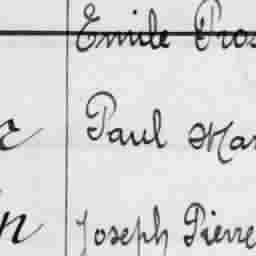 Emile Pros
Paul Mar
Joseph Pierre